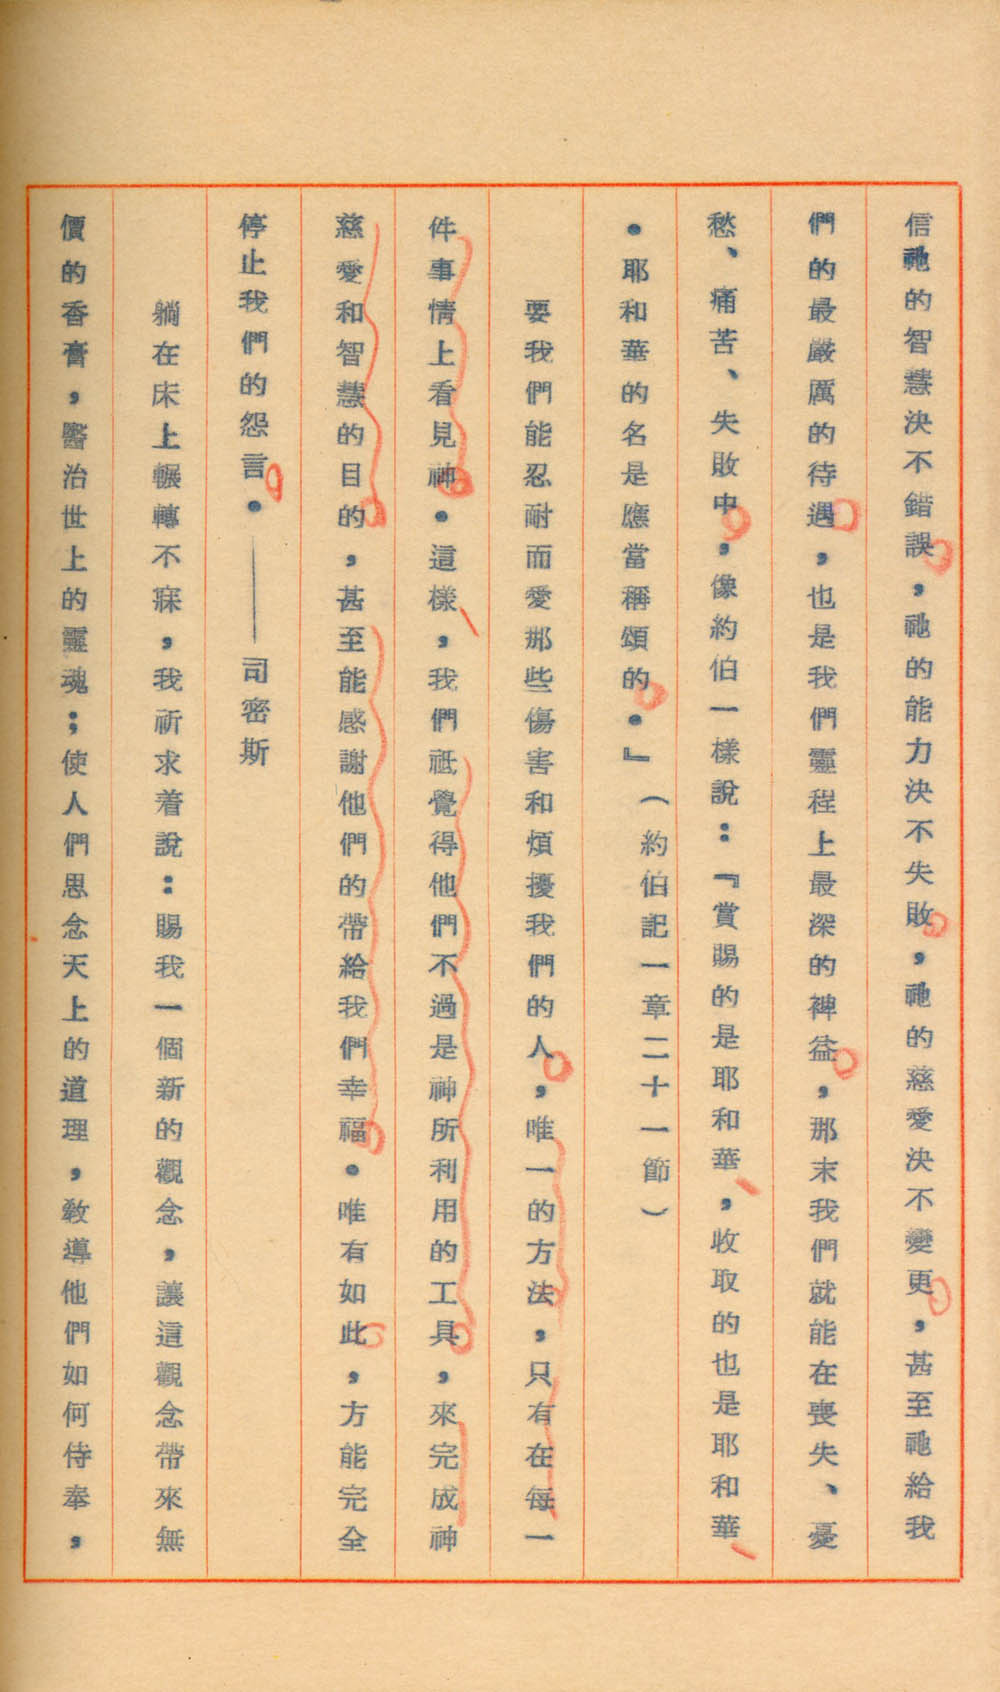 信祂的智慧決不錯誤，祂的能力決不失敗，祂的慈愛決不變更，甚至祂給我
們的最嚴厲的待遇，也是我們靈程上最深的裨益，那末我們就能在喪失、憂
愁、痛苦、失敗中，像約伯一樣說：『賞賜的是耶和華，收取的也是耶和華
。耶和華的名是應當稱頌的。』（約伯記一章二十一節）
要我們能忍耐而愛那些傷害和煩擾我們的人，唯一的方法，只有在每一
件事情上看見神。這樣，我們祗覺得他們不過是神所利用的工具，來完成神
慈愛和智慧的目的，甚至能感謝他們的帶給我們幸福。唯有如此，方能完全
停止我們的怨言。——司密斯
躺在床上輾轉不寐，我祈求着說：賜我一個新的觀念，讓這觀念帶來無
價的香膏，醫治世上的靈魂；使人們思念天上的道理，教導他們如何侍奉，